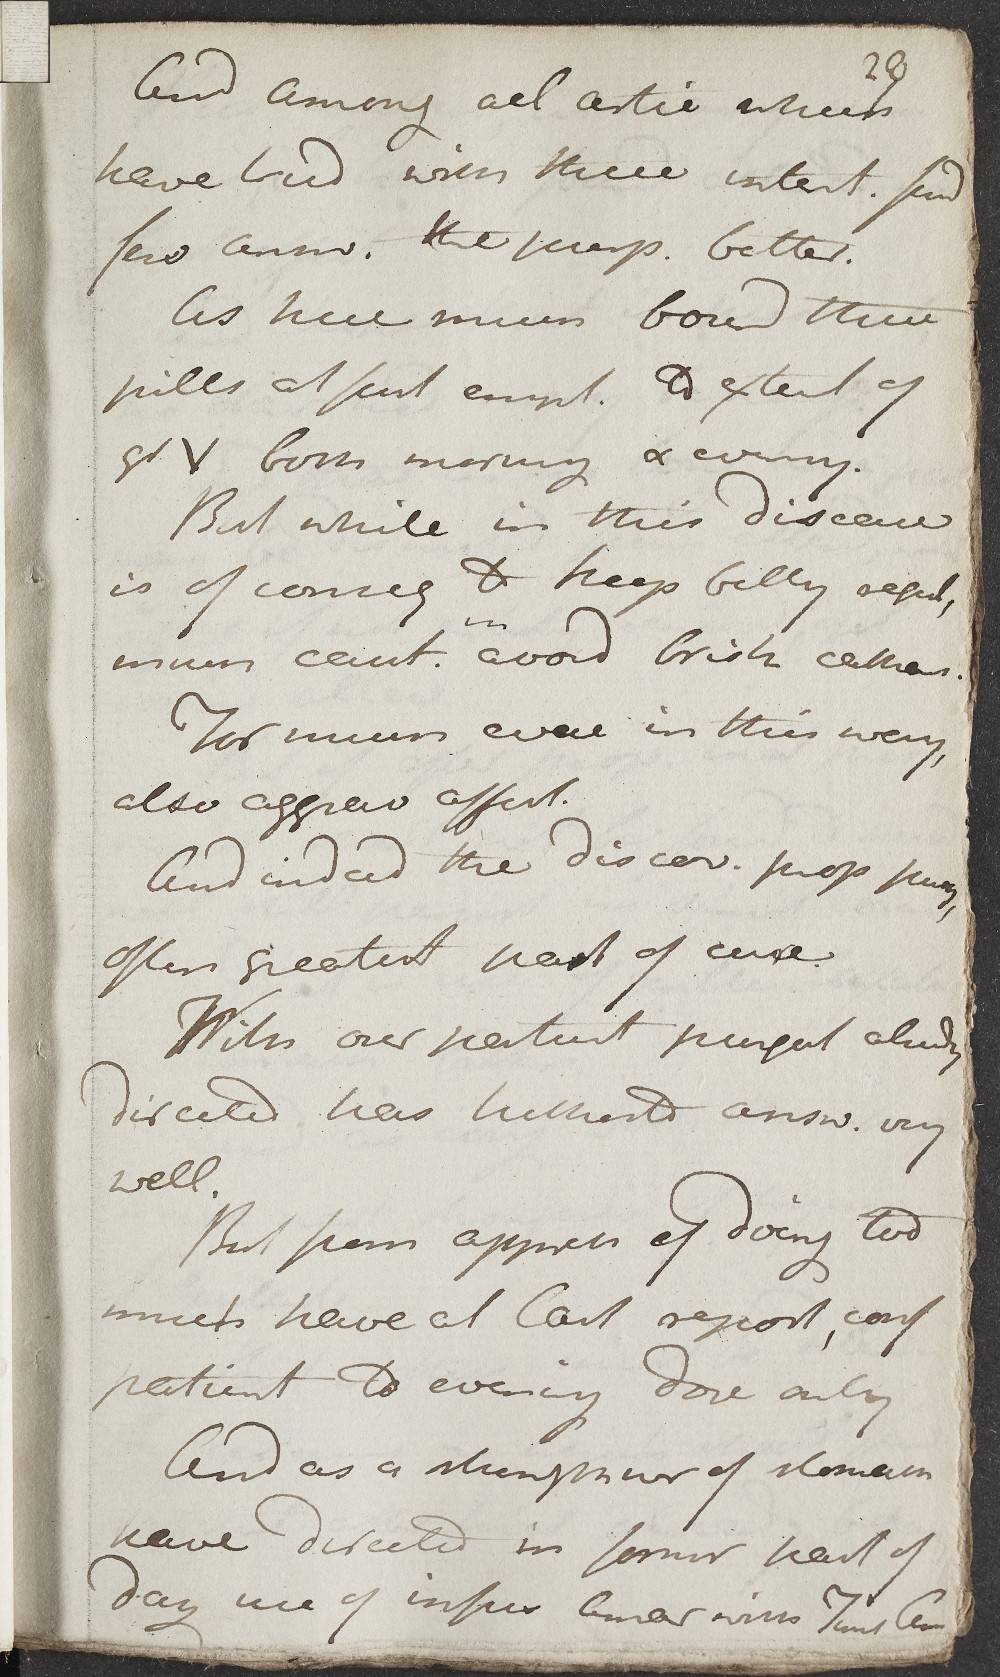 29
And among all artic which
have tried with these intent. find
few answ. the purp. better.
As here mean bound these
pills at first empl. to extent of
gr V both morning & evening.
But while in this disease
is of conseq to keep belly regul,
must caut. in avoid brisk cathar.
For much evac in this way,
also aggrav affect.
And indeed the discov. prop purg,
often greatest part of cure
With our patient purgat already
directed has hitherto answ. very
well.
But from appreh of doing too
much have at last report, conf
patient to evening dose only
And as a strengthner of stomach
have directed in former part of
day use of infus amar with Tinct Cin